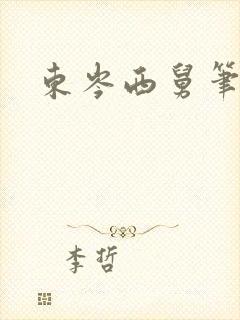 東岑西舅筆
李哲